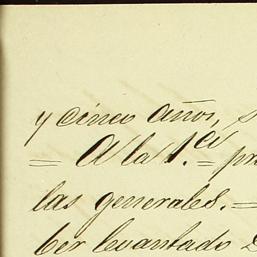 y cinco años, s
= A la 1.ª = pr
las generales. =
ber levantado